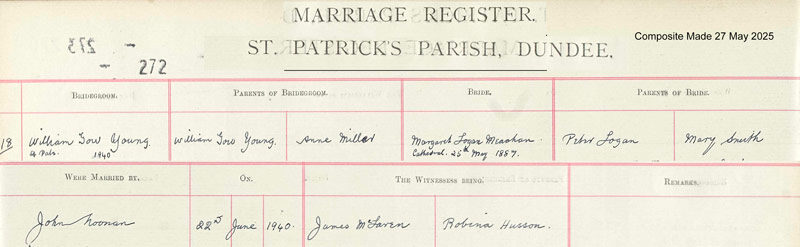 MARRIAGE REGISTER.
Composite Made 27 May 2025
273
ST. PATRICK'S PARISH, DUNDEE.
272
BRIDEGROOM. PARENTS OF BRIDEGROOM. BRIDE. PARENTS OF BRIDE.
18 William Gow Young. William Gow Young. Anne Miller Margaret Logan Meachan. Peter Logan Mary Smith
1940 Cathedral. 25th May 1887.
WERE MARRIED BY. ON. THE WITNESSESS BEING. REMARKS.
John Noonan 22nd June 1940. James McLaren Robina Husson.